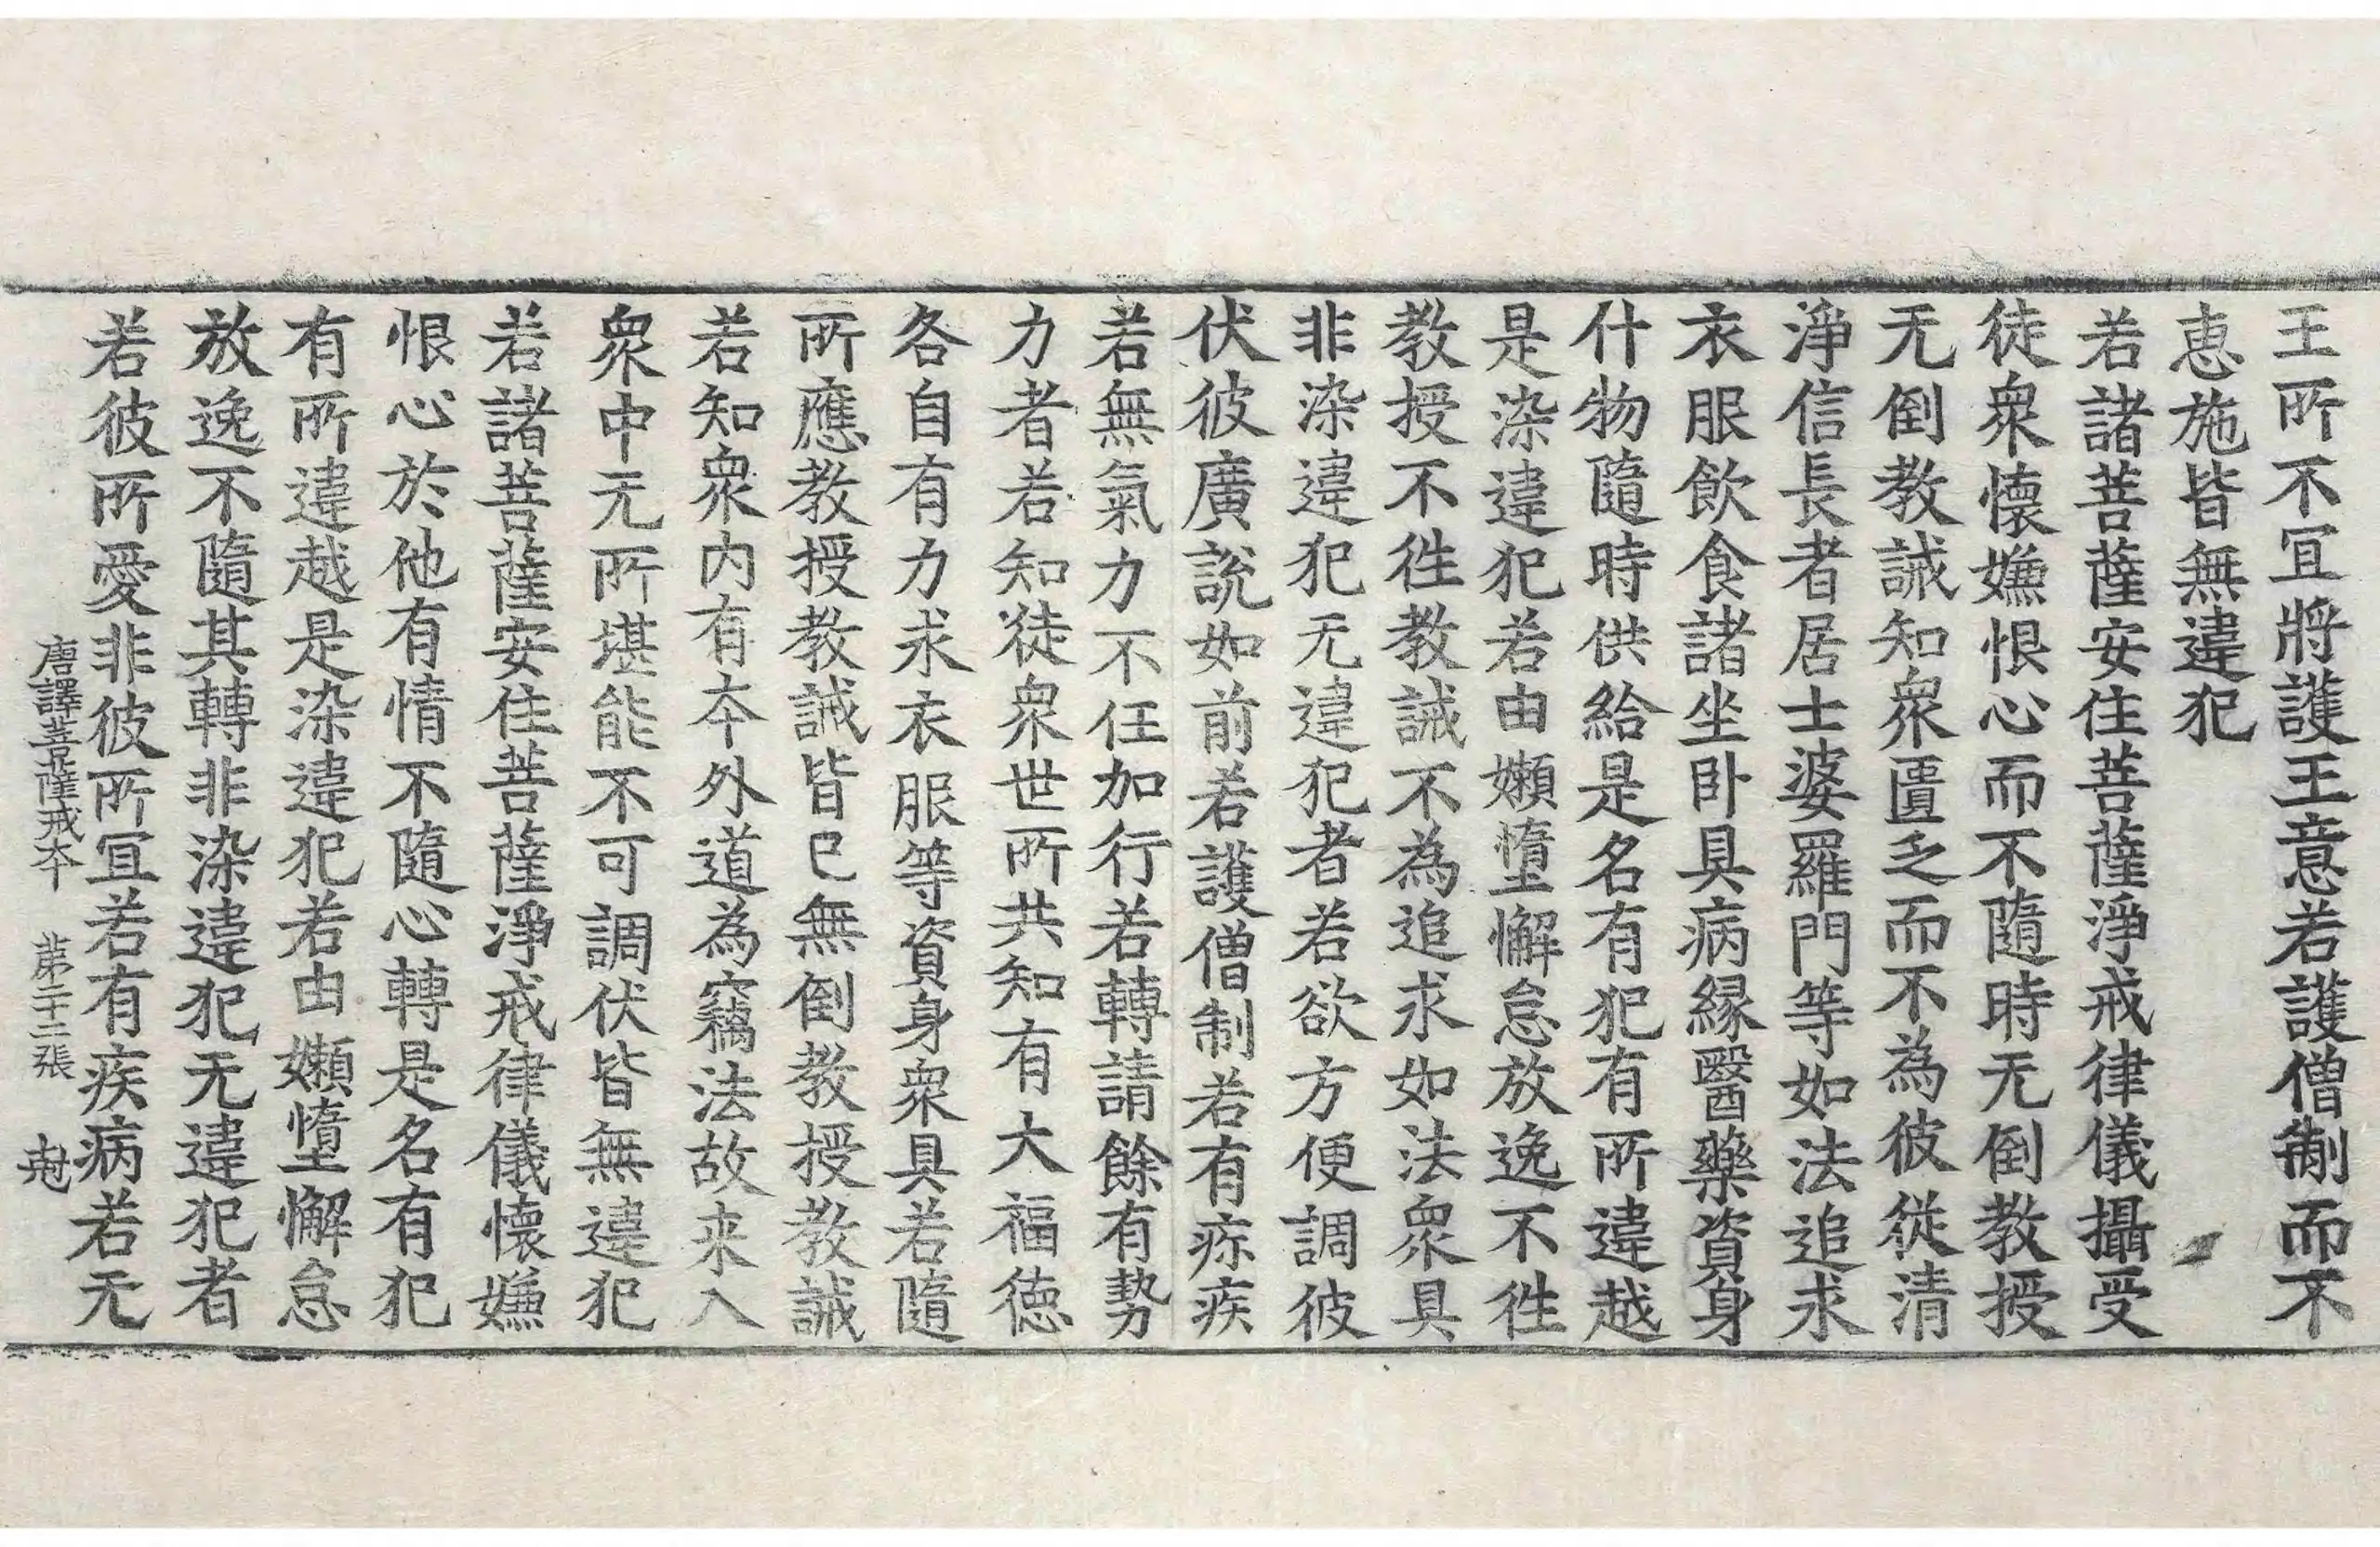 王所不宜將護王意若護僧制而不
恵施皆無違犯
若諸菩薩安住菩薩淨戒律儀攝受
徒衆懷嫌恨心而不隨時无倒教授
无倒教誡知衆匱乏而不為彼從清
淨信長者居士婆羅門等如法追求
衣服飲食諸坐卧具病縁醫藥資身
什物隨時供給是名有犯有所違越
是染違犯若由嬾墮懈怠放逸不徃
教授不徃教誡不為追求如法衆具
非染違犯无違犯者若欲方便調彼
伏彼廣說如前若護僧制若有疹疾
若無氣力不任加行若轉請餘有勢
力者若知徒衆世所共知有大福德
各自有力求衣服等資身衆具若隨
所應教授教誡皆已無倒教授教誡
若知衆内有夲外道為竊法故来入
衆中无所堪能不可調伏皆無違犯
若諸菩薩安住菩薩淨戒律儀懷嫌
恨心於他有情不隨心轉是名有犯
有所違越是染違犯若由嬾墮懈怠
放逸不隨其轉非染違犯无違犯者
若彼所愛非彼所宜若有疾病若无
唐譯菩薩戒夲 苐二十二張